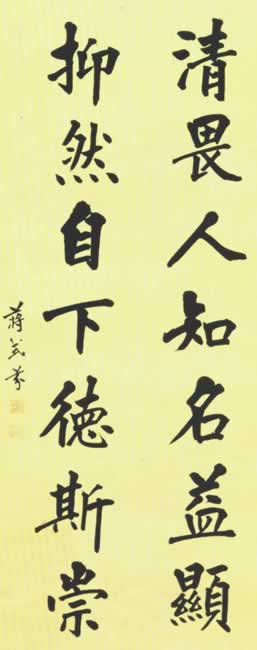 清畏人知名益顯
抑然自下德斯崇
蔣式芬